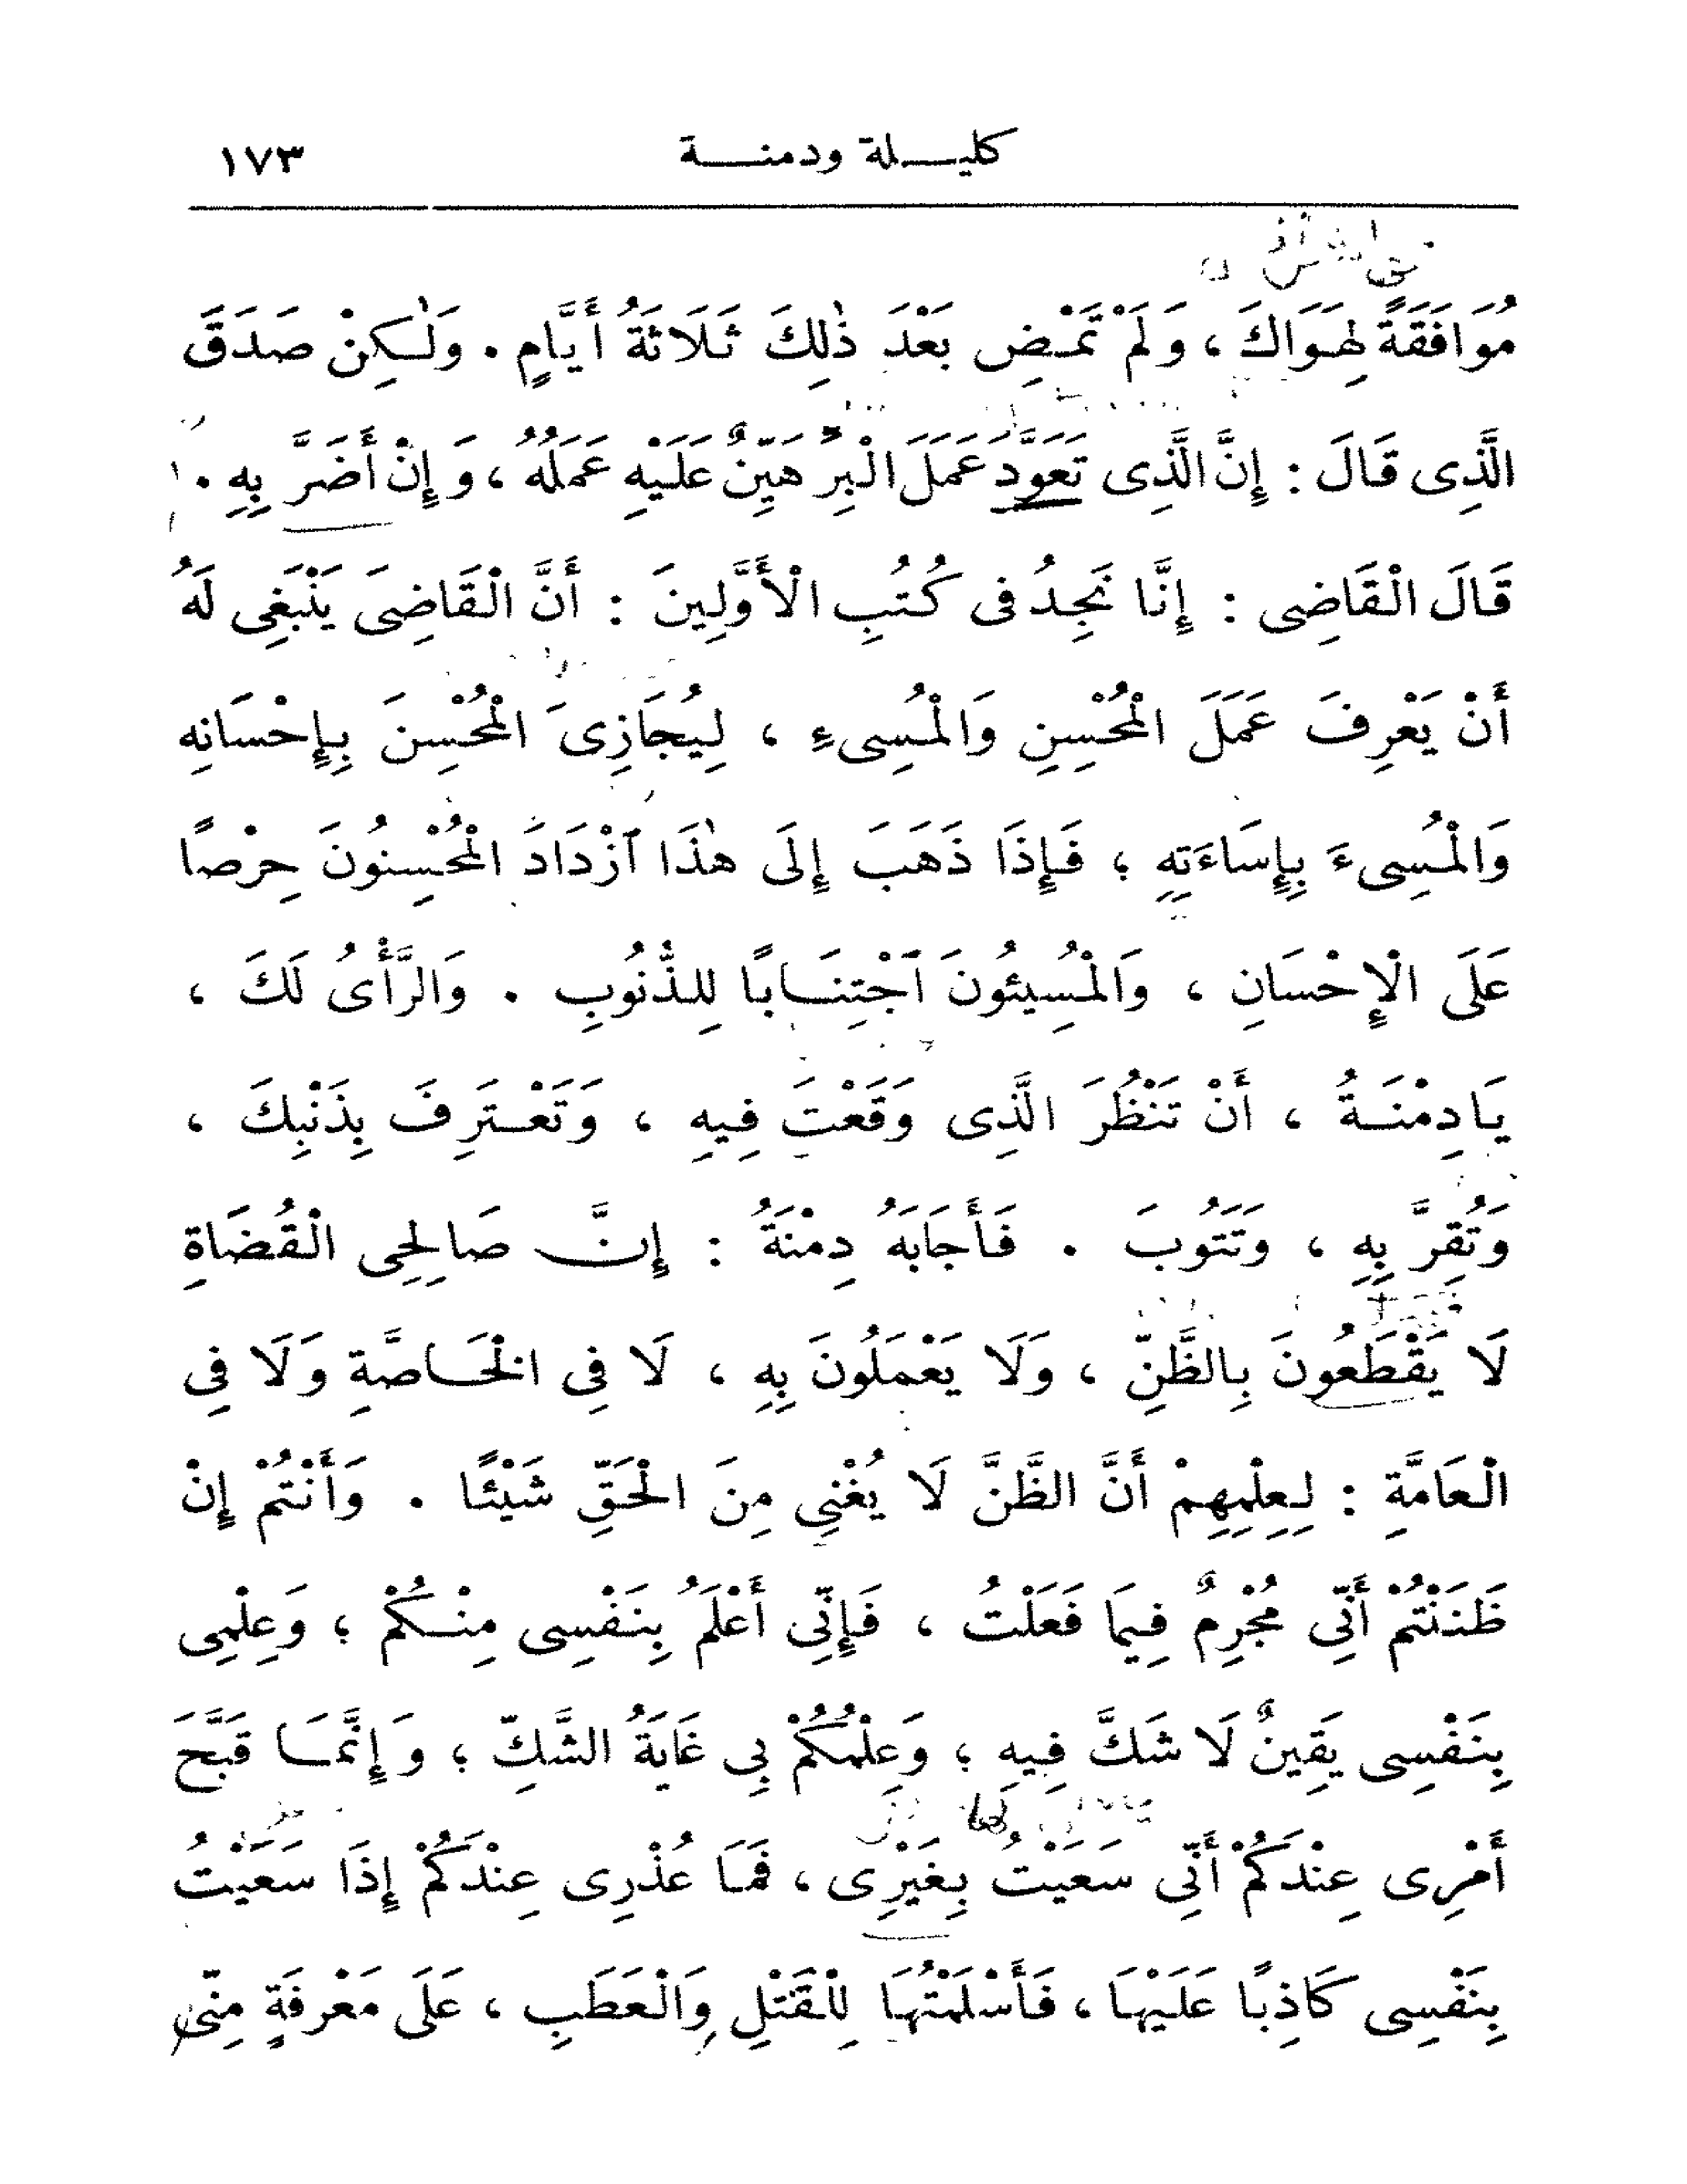 كليلة ودمنة ١٧٣
مُوَافَقَةً لِهَوَاكَ ، وَلَمْ تَمْضِ بَعْدَ ذٰلِكَ ثَلَاثَةُ أَيَّامٍ . وَلٰكِنْ صَدَقَ
الَّذِى قَالَ : إِنَّ الَّذِى تَعَوَّدَ عَمَلَ الْبِرِّ هَيِّنٌ عَلَيْهِ عَمَلُهُ ، وَإِنْ أَضَرَّ بِهِ .
قَالَ الْقَاضِى : إِنَّا نَجِدُ فى كُتُبِ الْأَوَّلِينَ : أَنَّ الْقَاضِىَ يَنْبَغِى لَهُ
أَنْ يَعْرِفَ عَمَلَ الْمُحْسِنِ وَالْمُسِىءِ ، لِيُجَازِىَ الْمُحْسِنَ بِإِحْسَانِهِ
وَالْمُسِىءَ بِإِسَاءَتِهِ ؛ فَإِذَا ذَهَبَ إِلَى هٰذَا ٱزْدَادَ الْمُحْسِنُونَ حِرْصًا
عَلَى الْإِحْسَانِ ، وَالْمُسِيئُونَ ٱجْتِنَابًا لِلذُّنُوبِ . وَالرَّأْىُ لَكَ ،
يَادِمْنَةُ ، أَنْ تَنْظُرَ الَّذِى وَقَعْتَ فِيهِ ، وَتَعْتَرِفَ بِذَنْبِكَ ،
وَتُقِرَّ بِهِ ، وَتَتُوبَ . فَأَجَابَهُ دِمْنَةُ : إِنَّ صَالِحِى الْقُضَاةِ
لَا يَقْطَعُونَ بِالظَّنِّ ، وَلَا يَعْمَلُونَ بِهِ ، لَا فِى الْخَاصَّةِ وَلَا فِى
الْعَامَّةِ : لِعِلْمِهِمْ أَنَّ الظَّنَّ لَا يُغْنِى مِنَ الْحَقِّ شَيْئًا . وَأَنْتُمْ إِنْ
ظَنَنْتُمْ أَنِّى مُجْرِمٌ فِيمَا فَعَلْتُ ، فَإِنِّى أَعْلَمُ بِنَفْسِى مِنْكُمْ ؛ وَعِلْمِى
بِنَفْسِى يَقِينٌ لَا شَكَّ فِيهِ ؛ وَعِلْمُكُمْ بِى غَايَةُ الشَّكِّ ؛ وَإِنَّمَا قَبَّحَ
أَمْرِى عِنْدَكُمْ أَنِّى سَعَيْتُ بِغَيْرِى ، فَمَا عُذْرِى عِنْدَكُمْ إِذَا سَعَيْتُ
بِنَفْسِى كَاذِبًا عَلَيْهَا ، فَأَسْلَمْتُهَا لِلْقَتْلِ وَالْعَطَبِ ، عَلَى مَعْرِفَةٍ مِنِّى